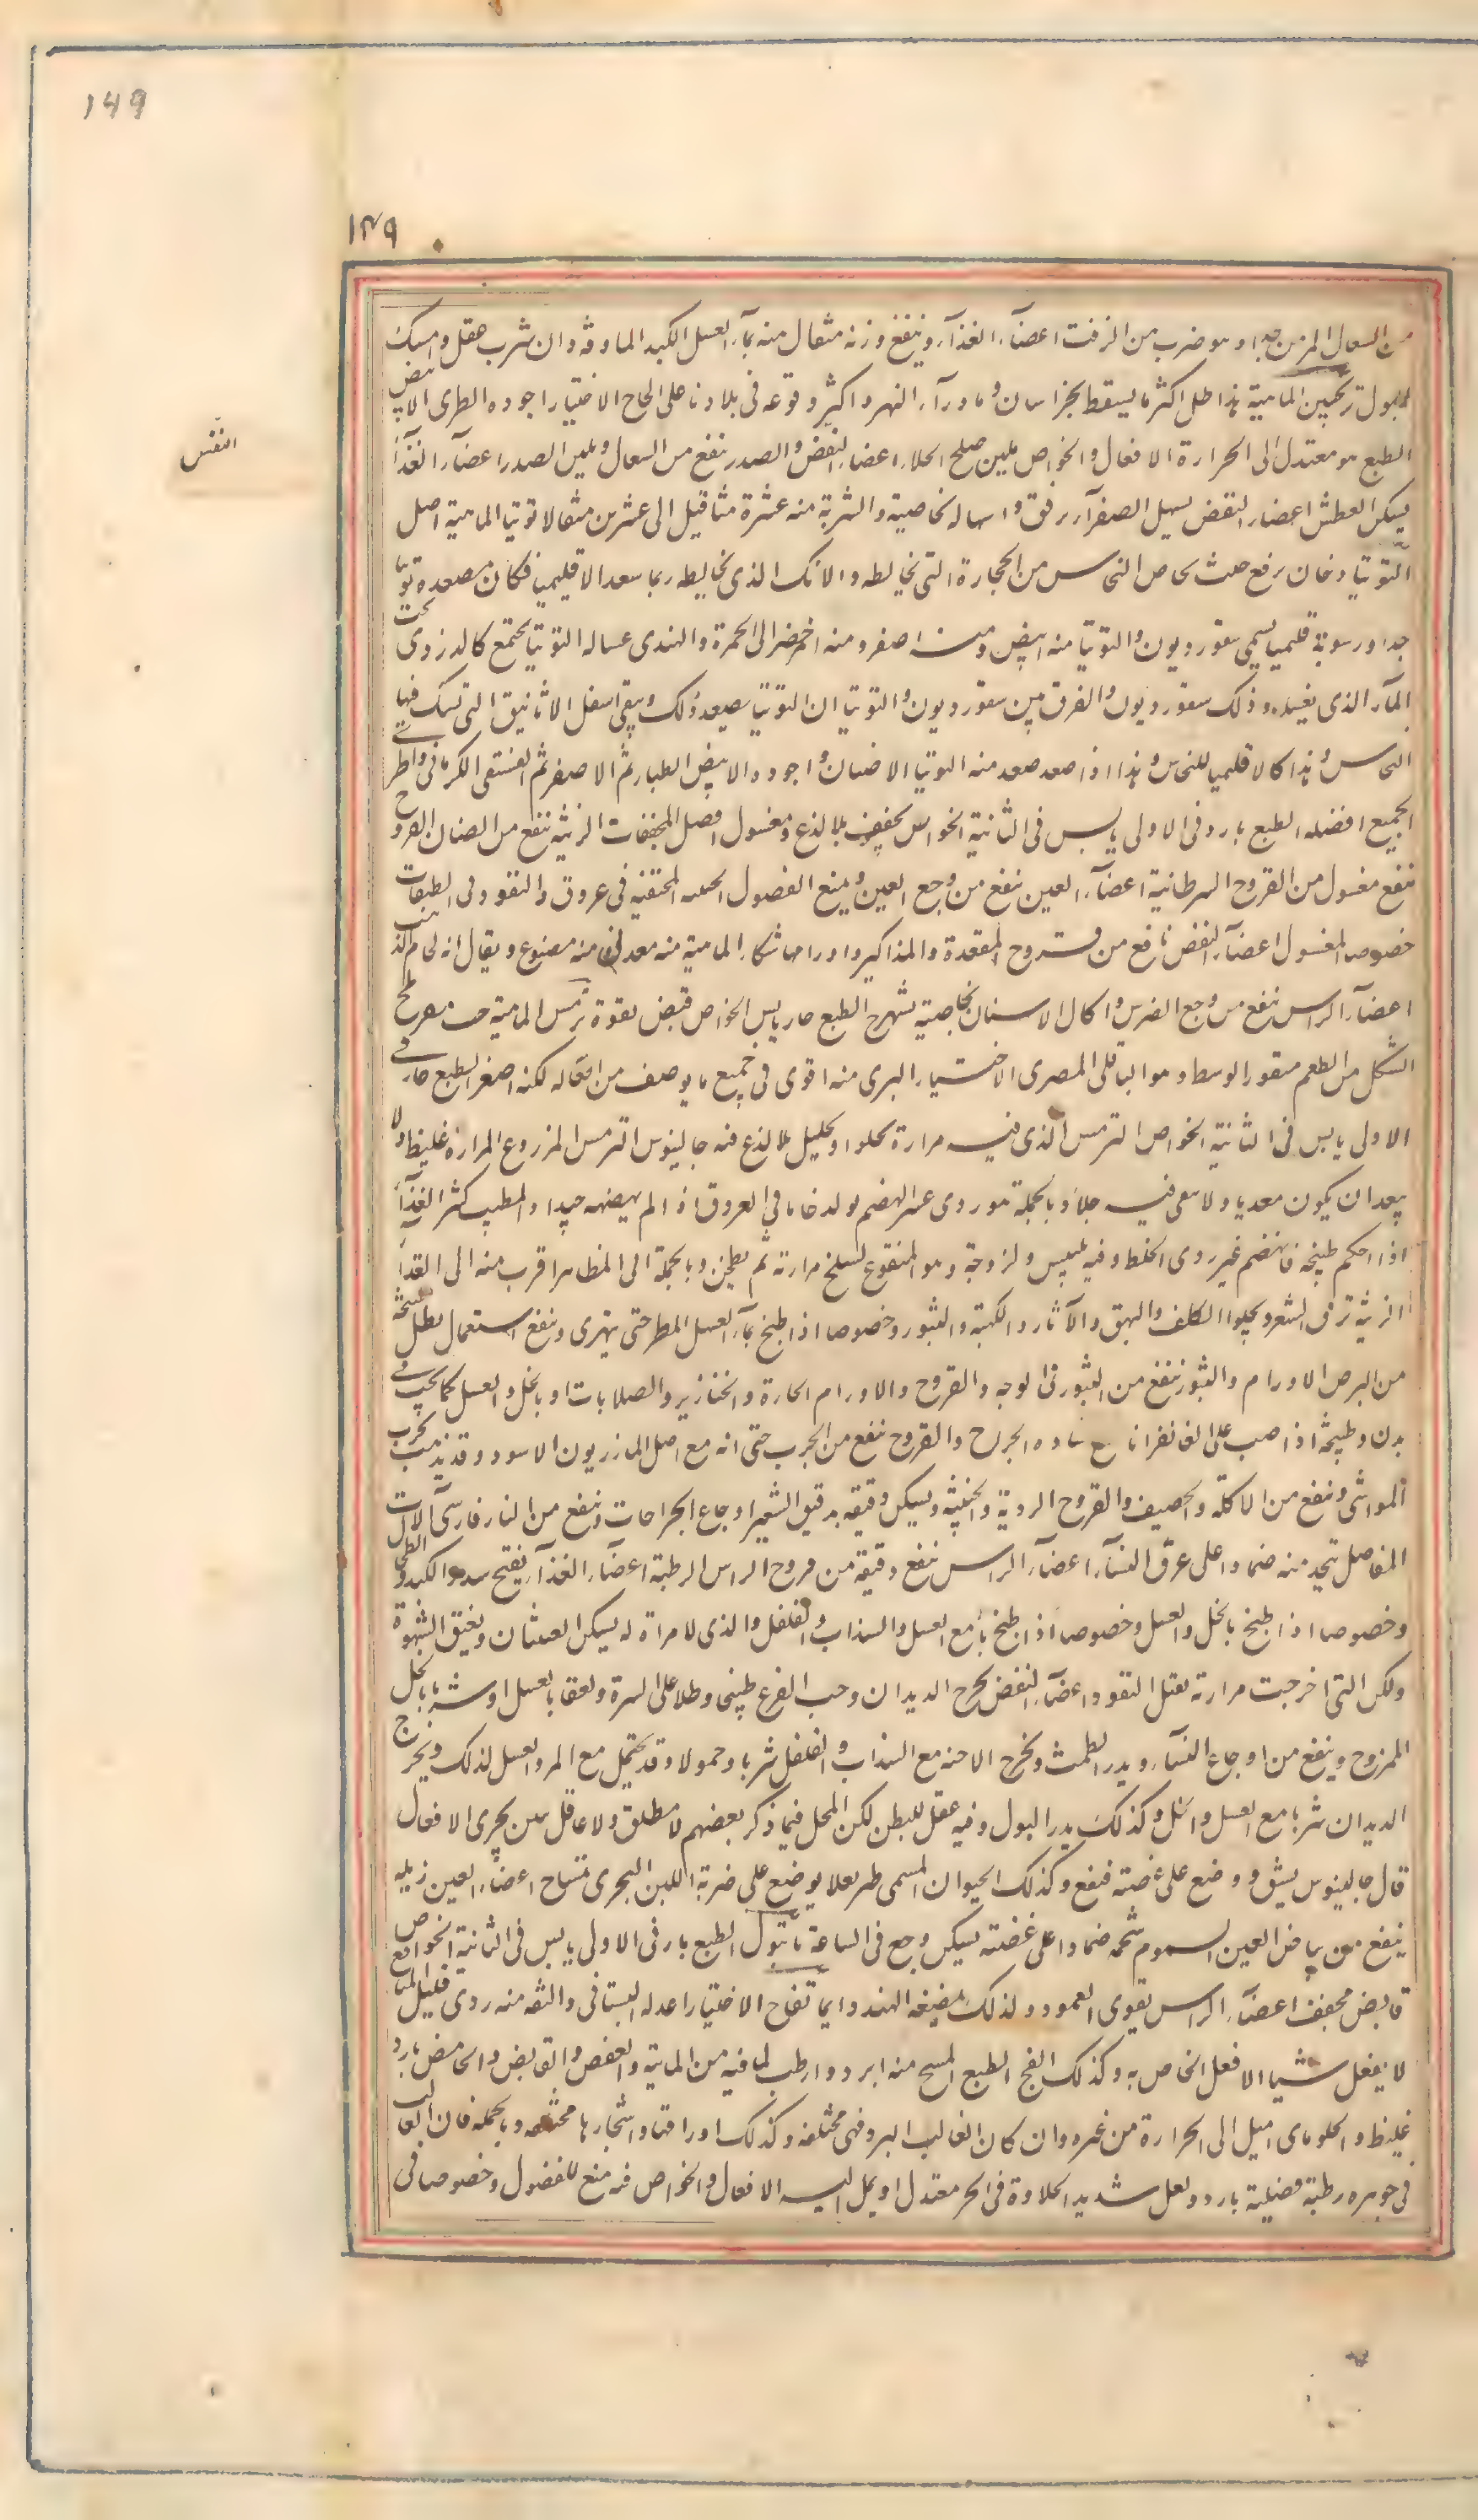 149
١٤٩
النفس
من السعال المزمن جدا وهو ضرب من الزفت اعضآء الغذآء وينفع وزنه مثقال منه بمآء العسل الكبد الماوفه وان شرب عقل وامسك
البول ترنجبين الماهية هذا طل اكثر ما يسقط بخراسان وماورآء النهر واكثر وقوعه فى بلادنا على الحاج الاختيار اجوده الطرى الابيض
الطبع هو معتدل الى الحرارة الافعال والخواص ملين صالح الجلاء اعضاء النفض والصدر ينفع من السعال ويلين الصدر اعضآء الغذآء
يسكن العطش اعضاء النفض يسهل الصفرآء برفق واسهاله بخاصية والشربة منه عشرة مثاقيل الى عشرين مثقالا توتيا الماهية اصل
التوتيا دخان يرفع حيث يخلص النحاس من الحجارة التى تخالطه والانك الذى يخالطه ربما صعد الاقليميا فكان مصعده توتيا
جدا ورسوبه قليميا يسمى سقوروديون والتوتيا منه ابيض ومنه اصفر ومنه اخضر الى الحمرة والهندى غساله التوتيا يجتمع كالدردى تحت
المآء الذى يغسله وذلك سقوروديون والفرق بين سقوروديون والتوتيا ان التوتيا يصعد وذلك ويبقى اسفل الاثانيق التى يسبك فيها
النحاس وهذا كالاقليميا للنحاس وهذا اذا صعد صعد منه التوتيا الاختيار واجوده الابيض الطيار ثم الاصفر ثم الفستقى الكرمانى واطرى
الجميع افضله الطبع بارد فى الاولى يابس فى الثانية الخواص يجفف بلا لذع ومغسول افضل المجففات الزينة ينفع من الصنان القروح
ينفع مغسول من القروح السرطانية اعضآء العين ينفع من وجع العين ويمنع الفضول الخبيثه المحتقنه فى عروق والنفوذ فى الطبقات
خصوصا المغسول اعضآء النفض نافع من قروح المقعدة والمذاكير واورامها تنكار الماهية منه معدنى منه مصنوع ويقال انه لحام الذهب
اعضآء الراس ينفع من وجع الضرس واكال الاسنان بخاصية تشهرج الطبع حار يابس الخواص قبض بقوة ترمس الماهية حب مفرطح
الشكل مر الطعم منقور الوسط وهو الباقلى المصرى الاختيار البرى منه اقوى فى جميع ما يوصف من افعاله لكنه اصغر الطبع حار فى
الاولى يابس فى الثانية الخواص الترمس الذى فيه مرارة يجلوا ويحليل بلا لذع فيه جالينوس الترمس المزروع المرارة غليظ ولا
يبعد ان يكون معديا ولا يبقى فيه جلاء وبالجملة هو ردى عسر الهضم يولد خاما فى العروق اذا لم يهضمه جيدا والمطيب كثير الغذآء
اذا احكم طبخه فانهضم غير ردى الخلط وفيه تيبيس ولزوجة وهو المنقوع ليسلخ مرارته ثم يطحن وبالجملة الى المظاهر اقرب منه الى الغذآء
الزينة ترق الشعر ويجلوا الكلف والبهق والآثار والكهبة والبثور وخصوصا اذا طبخ بمآء العسل المطر حتى يتهرى وينفع استعمال بطل طبيخه
من البرص الاورام والبثور ينفع من البثور فى الوجه والقروح والاورام الحارة والخنازير والصلابات او بالخل والعسل كما يجب فى
بدن وطبيخه اذا صب على الغانغرانا منع فساده الجراح والقروح ينفع من الجرب حتى انه مع اصل المازريون الاسود وقد يذهب بجرب
المواشى وينفع من الاكلة والحصف والقروح الردية والخبيثة ويسكن دقيقه بدقيق الشعير اوجاع الجراحات وينفع من النار فارسى آلات
المفاصل يتخذ منه ضمادا على عرق النسآء اعضآء الراس ينفع دقيقه من قروح الراس الرطبة اعضآء الغذآء يفتح سدد الكبد والطحال
وخصوصا اذا طبخ بالخل والعسل وخصوصا اذا طبخ بمآء مع العسل والسذاب والفلفل والذى لا مرارة له يسكن الغثيان ويفتق الشهوة
ولكن التى اخرجت مرارته يعقل النفوذ اعضآء النفض يخرج الديدان وحب القرع طبخا وطلاء على السرة ولعقا بالعسل او شربا بالخل
الممزوج وينفع من اوجاع النسآء ويدر الطمث ويخرج الاجنه مع السذاب والفلفل شربا وحمولا وقد يحتمل مع المر والعسل لذلك ويخرج
الديدان شربا مع العسل والخل وكذلك يدر البول وفيه عقل للبطن لكن المحل فيما ذكر بعضهم لا مطلق ولا عاقل بنن بحرى الافعال
قال جالينوس يشق ووضع على عضته فنفع وكذلك الحيوان المسمى طريغلا يوضع على ضربة التنين البحرى تمساح اعضآء العين زبله
ينفع من بياض العين السموم شحمه ضمادا على عضته يسكن وجع فى الساعة تانبول الطبع بارد فى الاولى يابس فى الثانية الخواص
قابض مجفف اعضآء الراس يقوى العمود ولذلك يمضغه الهند دايما تفاح الاختيار اعدله البستانى والتفه منه ردى قليل المنافع
لا يفعل شيا الا فعل الخاص به وكذلك الفج الطبع المسيخ منه ابرد وارطب لما فيه من المائية والعفص والقابض والحامض بارد
غليظ والحلو مائى اميل الى الحرارة من غيره وان كان الغالب البرد فهى مختلفه وكذلك اوراقها واشجارها مختلفه وبالجمله فان الغالب
فى جوهره رطبة فضيلية بارده ولعل شديد الحلاوة فى الحر معتدل او يميل اليه الافعال والخواص فيه منع للفضول وخصوصا فى